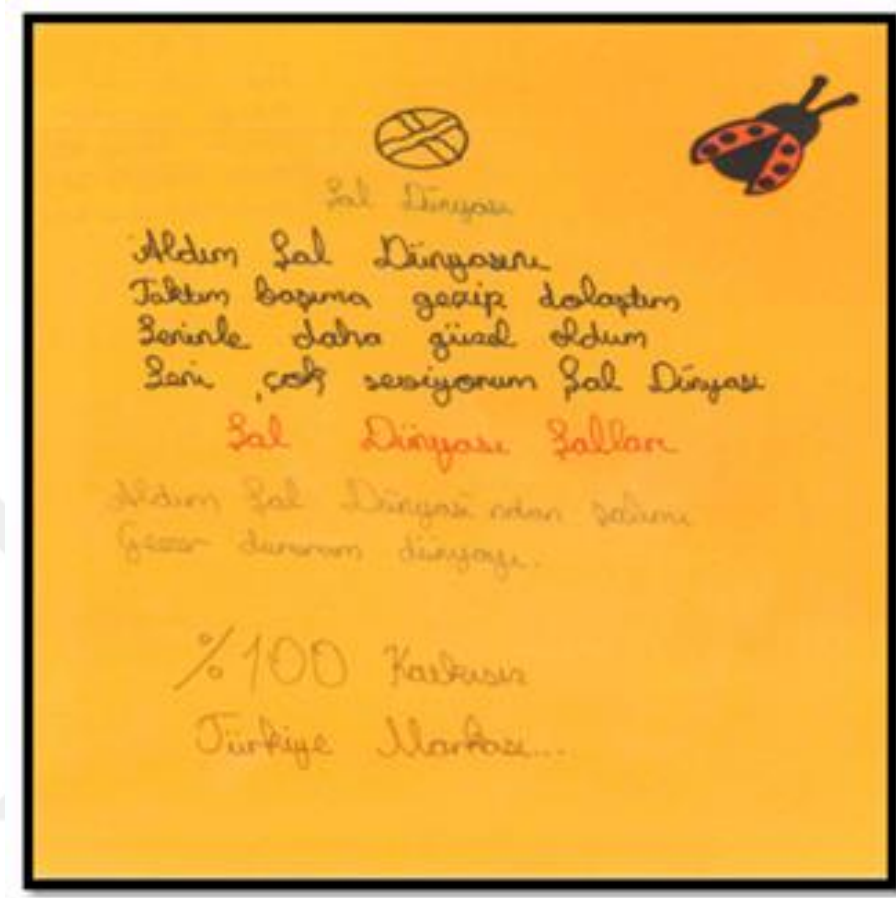 Şal Dünyası
Aldım Şal Dünyasını
Taktım başıma gezip dolaştım
Seninle daha güzel oldum
Seni çok seviyorum Şal Dünyası
Şal Dünyası Şalları
Aldım Şal Dünyası'ndan şalımı
Gezer dururum dünyayı.
%100 Katkısız
Türkiye Markası...